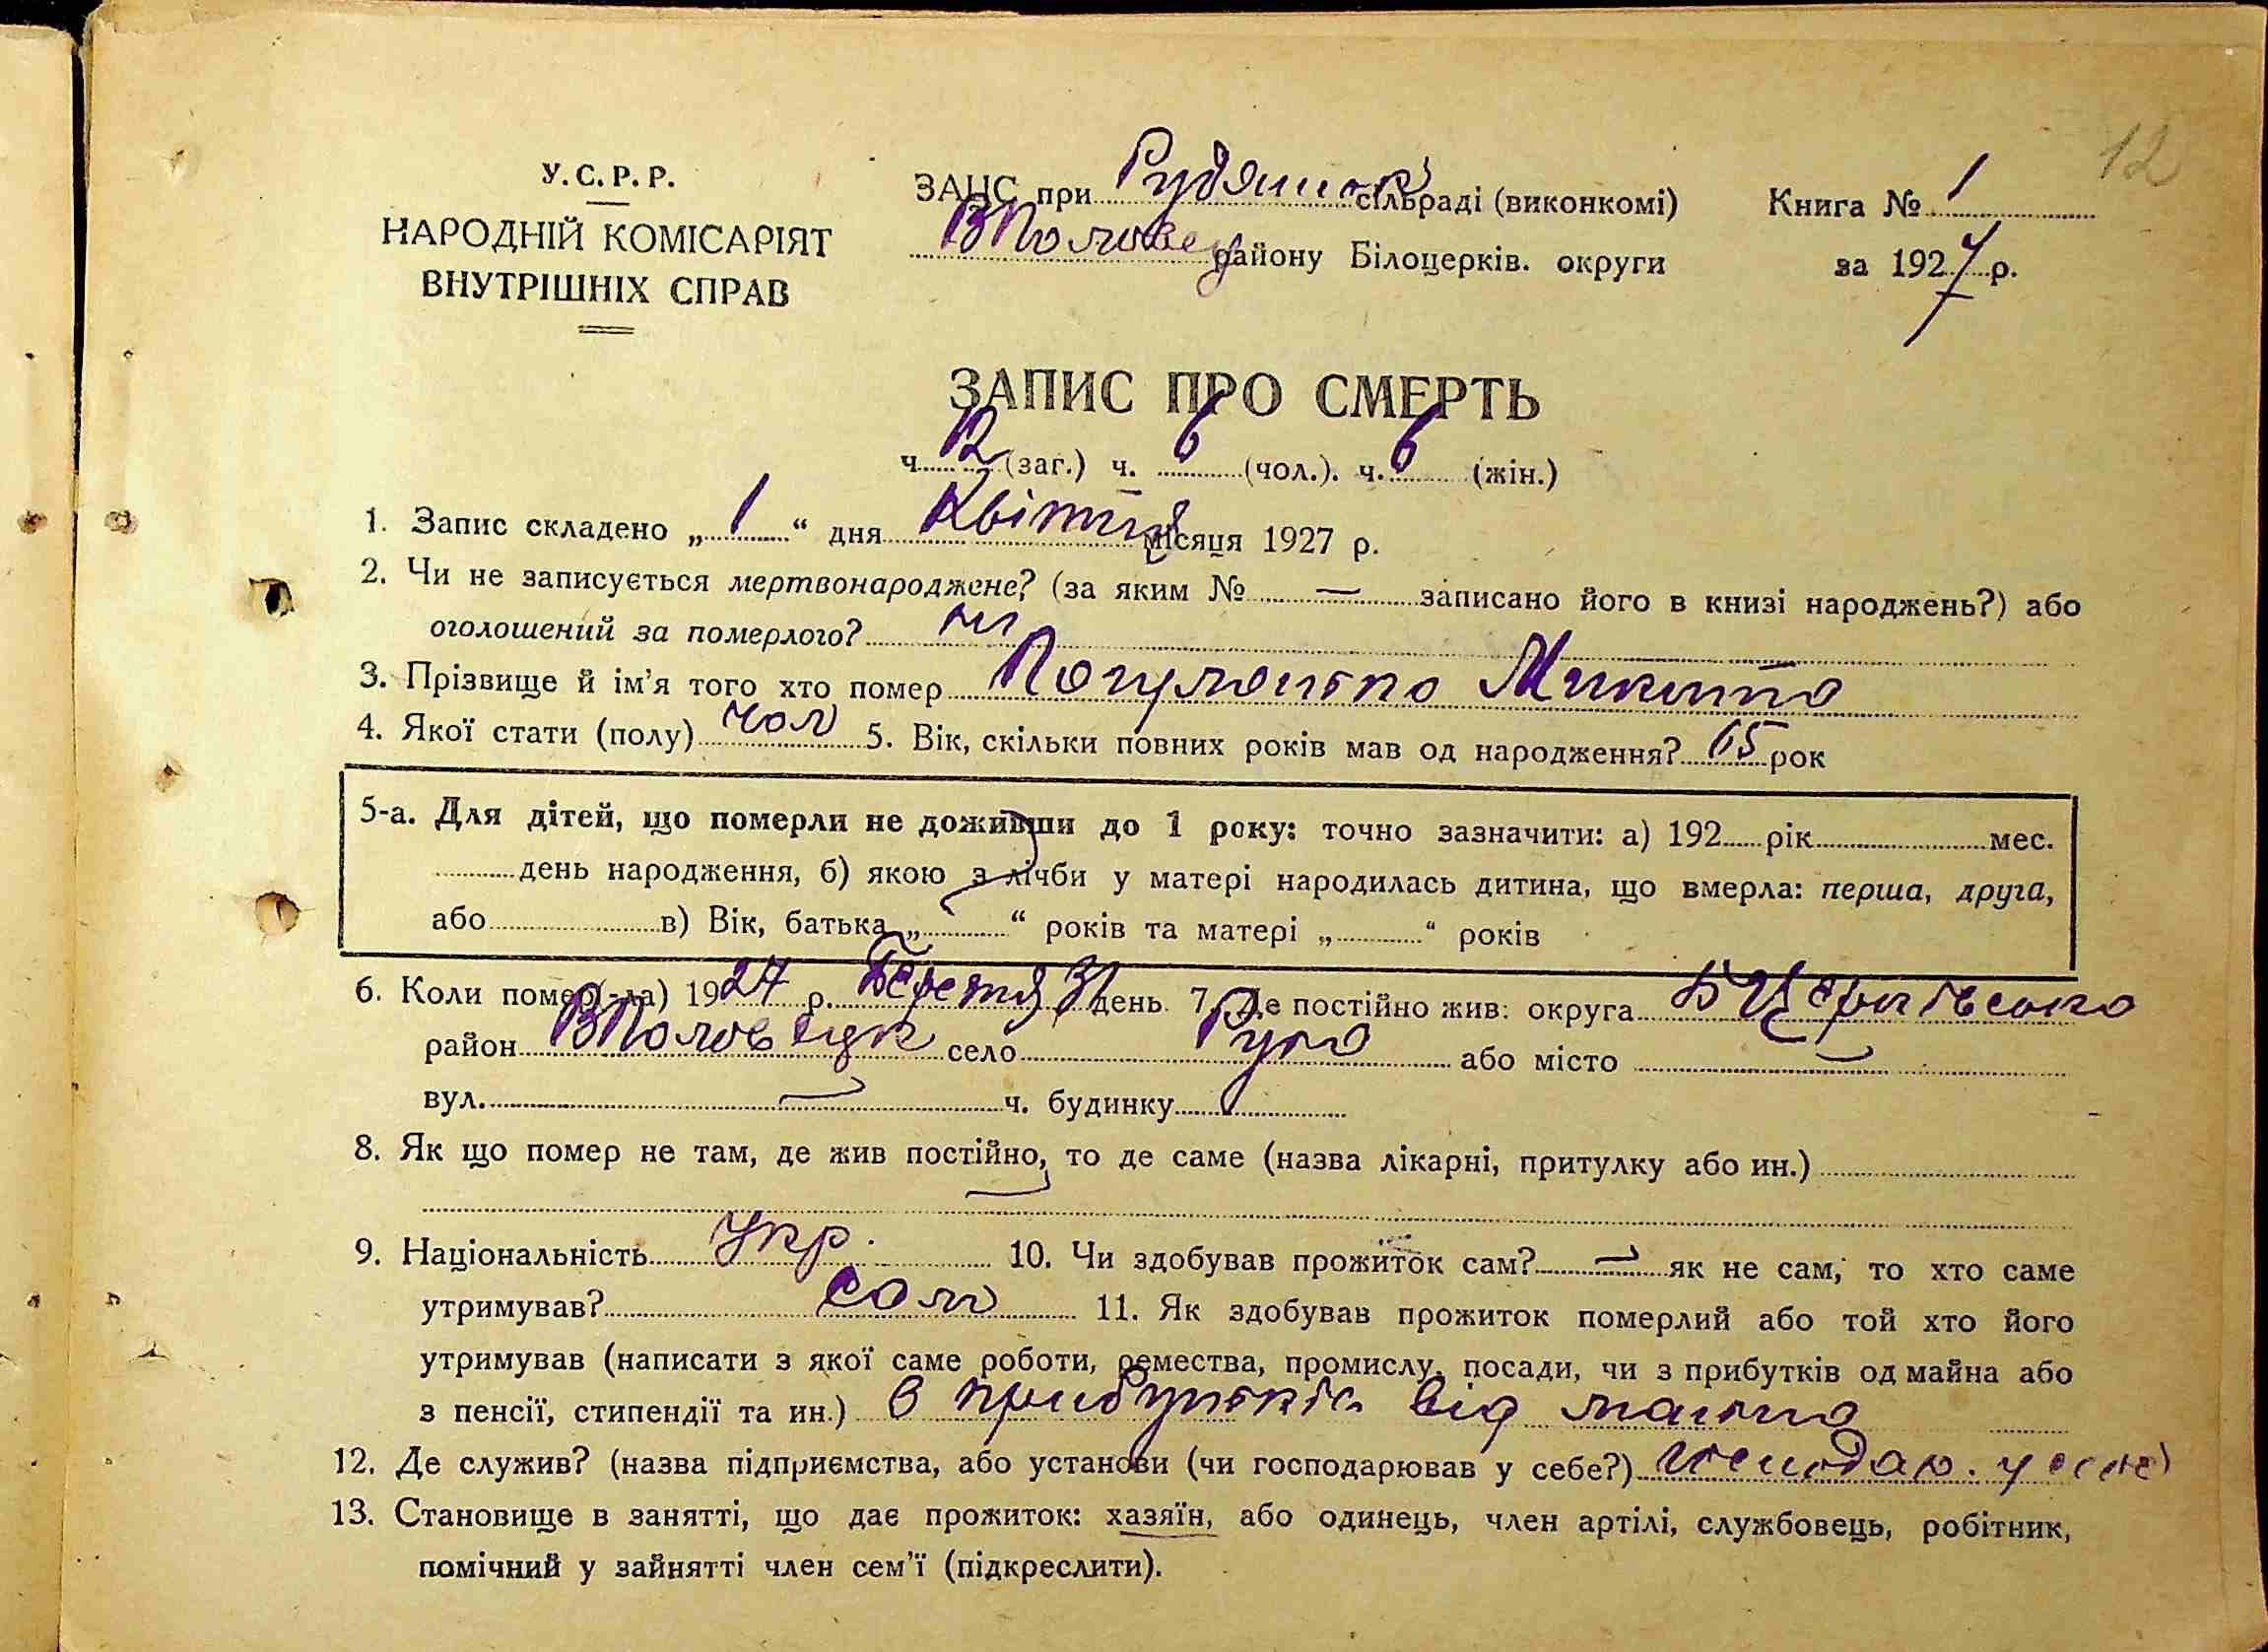 12
У.С.Р.Р.
НАРОДНІЙ КОМІСАРІЯТ
ВНУТРІШНІХ СПРАВ
ЗАНС при сільраді (виконкомі)
ВПоловец району Білоцерків. округи
Книга № 1
за 1927 р.
ЗАПИС ПРО СМЕРТЬ
ч. 12 (заг.) ч. 6 (чол.). ч. 6 (жін.)
1. Запис складено „ 1 “ дня Квітня місяця 1927 р.
2. Чи не записується мертвонароджене? (за яким № — записано його в книзі народжень?) або
оголошений за померлого? ні
3. Прізвище й ім’я того хто помер Микита
4. Якої стати (полу) чол 5. Вік, скільки повних років мав од народження? 65 рок
5-а. Для дітей, що померли не доживши до 1 року: точно зазначити: а) 192 рік мес.
день народження, б) якою з лічби у матері народилась дитина, що вмерла: перша, друга,
або в) Вік, батька „ “ років та матері „ “ років
6. Коли помер(-ла) 1927 р. Березня 31 день. 7. Де постійно жив: округа БЦерківсько
район ВПоловецк село Руда або місто —
вул. — ч. будинку
8. Як що помер не там, де жив постійно, то де саме (назва лікарні, притулку або ин.)
9. Національність Укр. 10. Чи здобував прожиток сам? — як не сам, то хто саме
утримував? сам 11. Як здобував прожиток померлий або той хто його
утримував (написати з якої саме роботи, ремества, промислу, посади, чи з прибутків од майна або
з пенсії, стипендії та ин.) з прибутків від майна
12. Де служив? (назва підприємства, або установи (чи господарював у себе?) господар. у себе
13. Становище в занятті, що дає прожиток: хазяїн, або одинець, член артілі, службовець, робітник,
помічний у зайнятті член сем’ї (підкреслити).